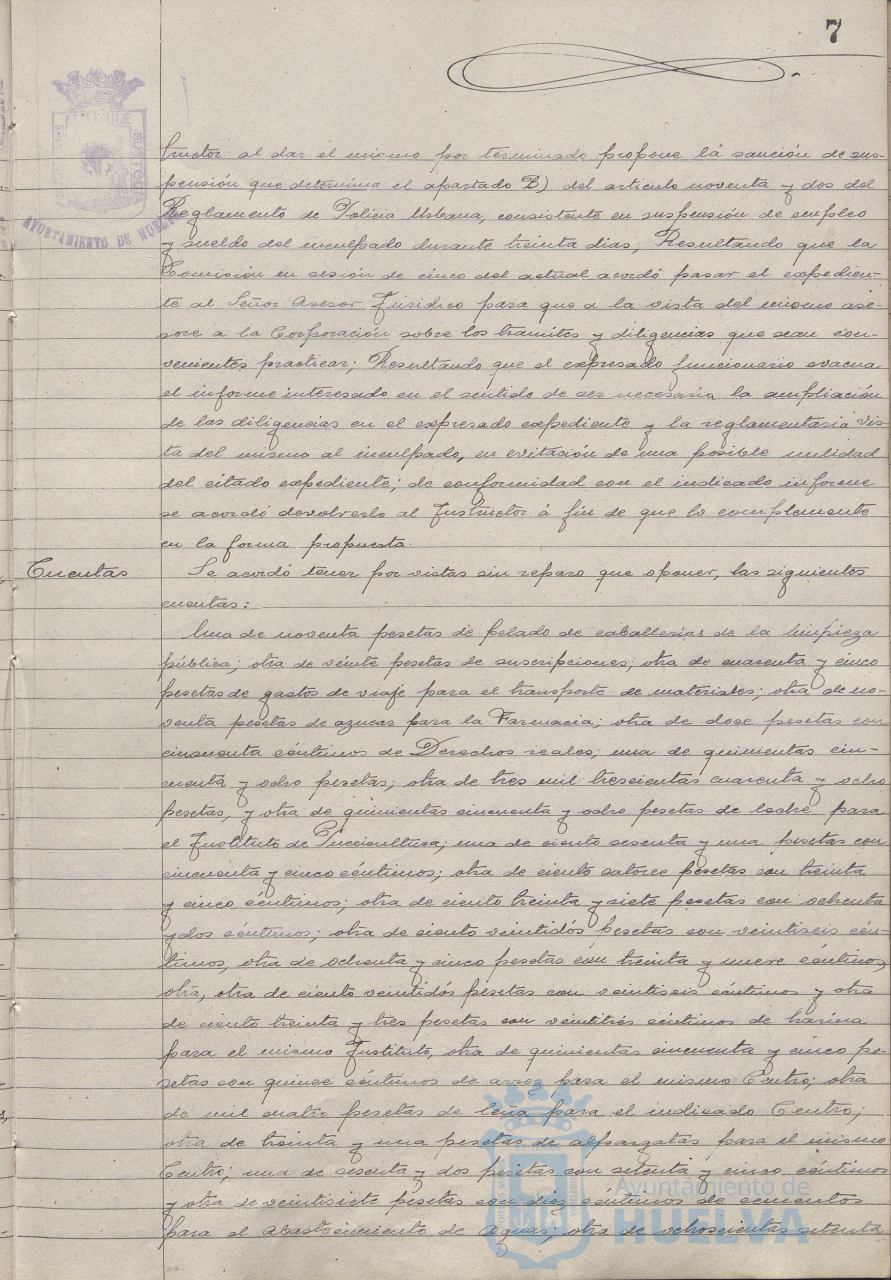 7
AYUNTAMIENTO DE HUELVA
tructor al dar el mismo por terminado propone la sanción de sus-
pensión que determina el apartado B) del articulo noventa y dos del
Reglamento de Policia Urbana, consistente en suspensión de empleo
y sueldo del inculpado durante treinta dias; Resultando que la
Comisión en sesión de cinco del actual acordó pasar el expedien-
te al Señor Asesor Juridico para que a la vista del mismo ase-
sore a la Corporación sobre los tramites y diligencias que sean con-
venientes practicar; Resultando que el expresado funcionario evacua
el informe interesado en el sentido de ser necesaria la ampliación
de las diligencias en el expresado expediente y la reglamentaria vis-
ta del mismo al inculpado, en evitación de una posible nulidad
del citado expediente; de conformidad con el indicado informe
se acordó devolverslo al Instructor á fin de que lo complemente
en la forma propuesta.
Cuentas
Se acordó tener por vistas sin reparo que oponer, las siguientes
cuentas:
Una de noventa pesetas de pelado de caballerias de la limpieza
pública; otra de veinte pesetas de suscripciones; otra de cuarenta y cinco
pesetas de gastos de viaje para el transporte de materiales; otra de no-
venta pesetas de azucar para la Farmacia; otra de doce pesetas con
cincuenta céntimos de Derechos reales; una de quinientas cin-
cuenta y ocho pesetas; otra de tres mil trescientas cuarenta y ocho
pesetas, y otra de quinientas cincuenta y ocho pesetas de leche para
el Instituto de Puericultura; una de ciento sesenta y una pesetas con
cincuenta y cinco céntimos; otra de ciento catorce pesetas con treinta
y cinco céntimos; otra de ciento treinta y siete pesetas con ochenta
y dos céntimos; otra de ciento veintidós pesetas con veintiseis cén-
timos, otra de ochenta y cinco pesetas con treinta y nueve céntimos,
otra, otra de ciento veintidós pesetas con veintiseis céntimos y otra
de ciento treinta y tres pesetas con veintitrés céntimos de harina
para el mismo Instituto, otra de quinientas cincuenta y cinco pe-
setas con quince céntimos de arroz para el mismo Centro; otra
de mil cuatro pesetas de leña para el indicado Centro;
otra de treinta y una pesetas de alpargatas para el mismo
Centro; una de sesenta y dos pesetas con setenta y cinco céntimos
y otra de veintisiete pesetas con diez céntimos de cementos
para el Abastecimiento de Aguas; otra de ochocientas setenta
Ayuntamiento de
HUELVA